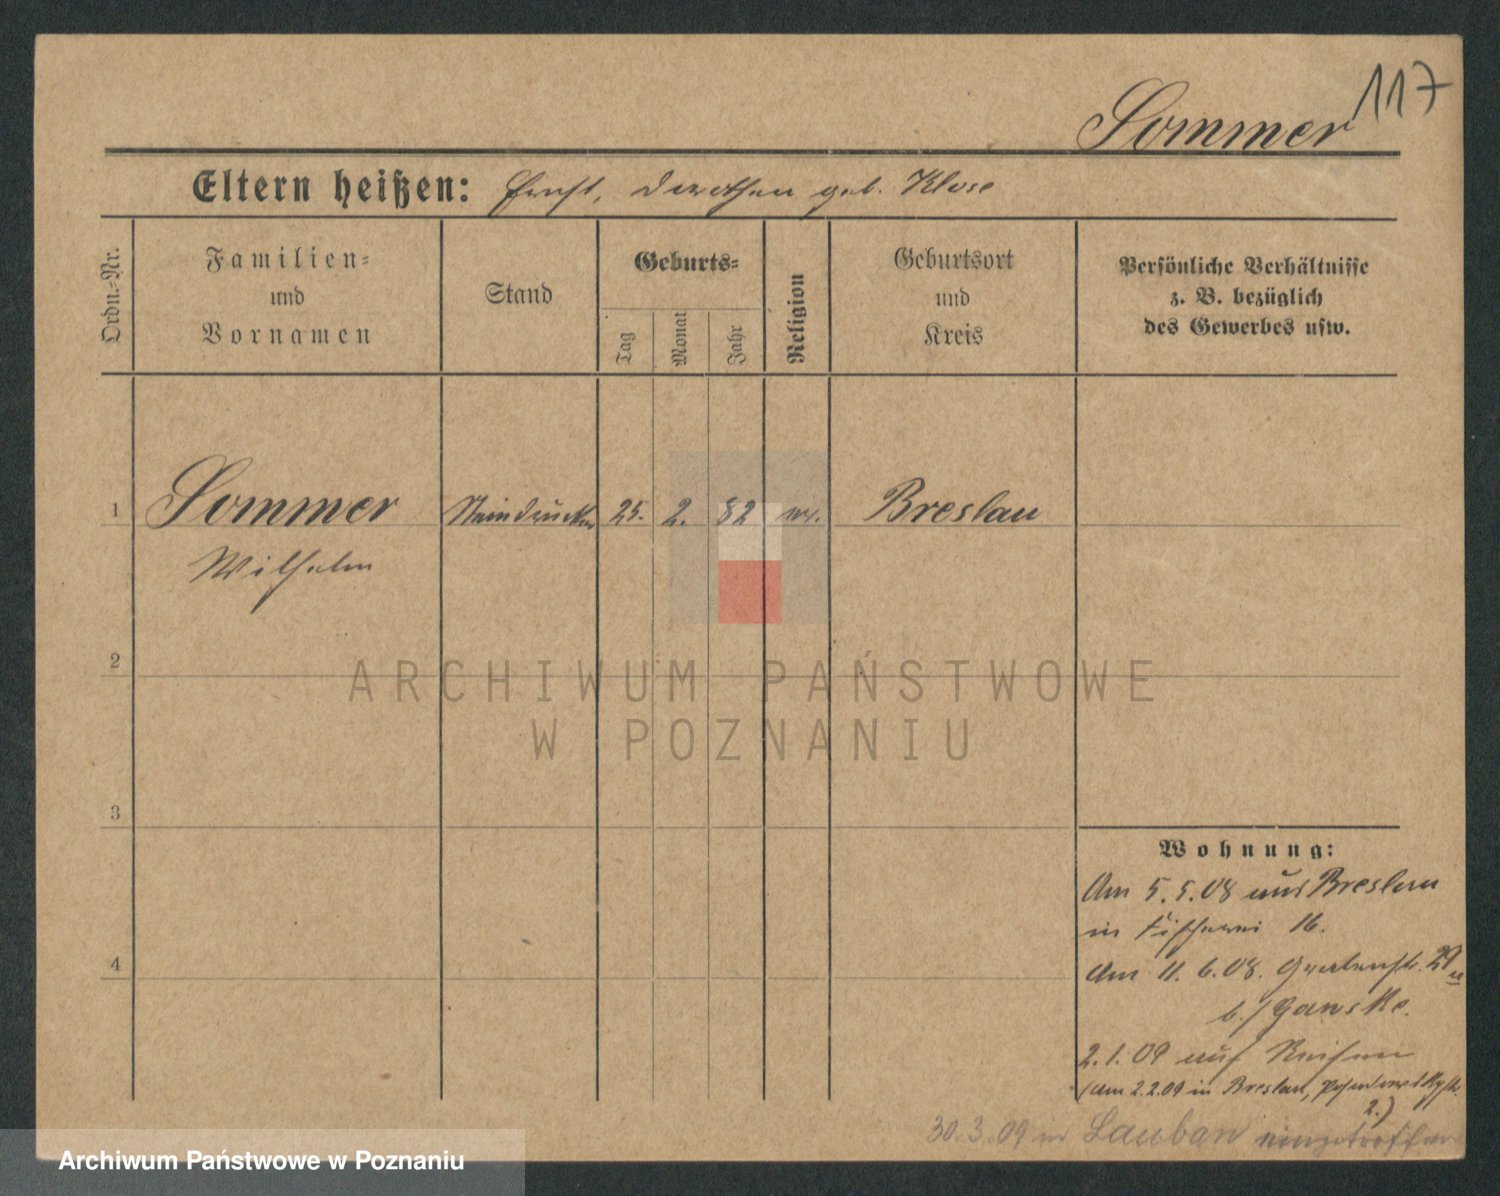 117
Sommer
Eltern heißen: Ernst, Dorothea geb. Klose
Ordn.-Nr.
Familien-
und
Vornamen
Stand
Geburts-
Tag
Monat
Jahr
Religion
Geburtsort
und
Kreis
Persönliche Verhältnisse
z. B. bezüglich
des Gewerbes usw.
1 Sommer Steindrucker 25. 2. 82 ev. Breslau
Wilhelm
2
ARCHIWUM PAŃSTWOWE
W POZNANIU
3
Wohnung:
Am 5.5.08 aus Breslau
in Fischerei 16.
4
Am 11.6.08. Grabenstr. 29
b./ Ganske.
2.1.09 auf Reisen
(Am 2.2.09 in Breslau,
2.)
30.3.09 in Lauban eingetroffen
Archiwum Państwowe w Poznaniu